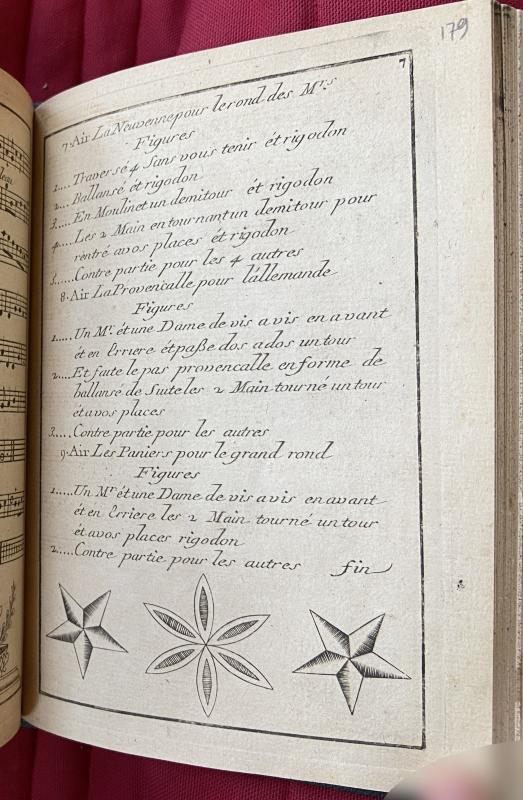 179
7
7. Air La Neuvenne pour le rond des Mrs
Figures
1.... Traversé 4 Sans vous tenir ét rigodon
2... Ballansé ét rigodon
3.... En Moulinet un demitour ét rigodon
4.... Les 2 Main en tournant un demitour pour
rentré avos places ét rigodon
5...... Contre partie pour les 4 autres
8. Air La Provencalle pour lallemande
Figures
1..... Un Mr. ét une Dame de vis a vis en avant
ét en Erriere ét paße dos a dos un tour
2..... Et faite le pas provencalle en forme de
ballansé de Suite les 2 Main tourné un tour
ét avos places
3..... Contre partie pour les autres
9. Air Les Paniers pour le grand rond
Figures
1..... Un Mr ét une Dame de vis a vis en avant
ét en Erriere les 2 Main tourné un tour
ét avos places rigodon
2..... Contre partie pour les autres fin